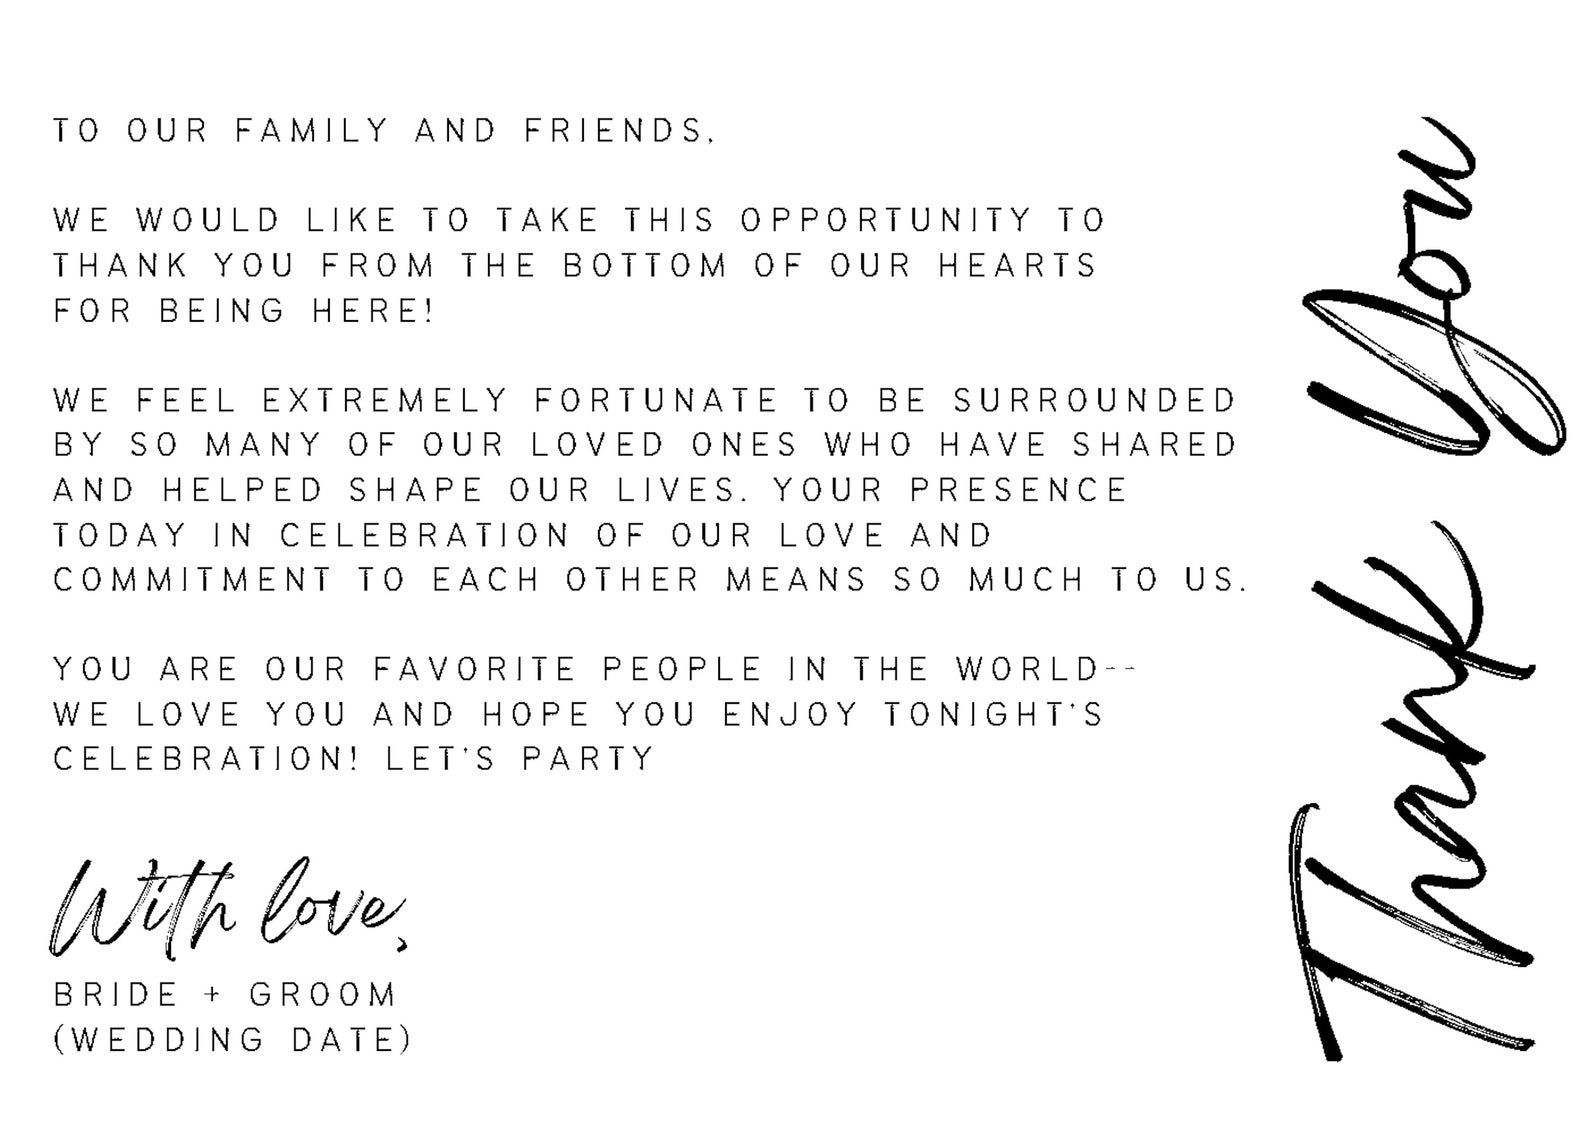 TO OUR FAMILY AND FRIENDS,
WE WOULD LIKE TO TAKE THIS OPPORTUNITY TO
THANK YOU FROM THE BOTTOM OF OUR HEARTS
FOR BEING HERE!
WE FEEL EXTREMELY FORTUNATE TO BE SURROUNDED
BY SO MANY OF OUR LOVED ONES WHO HAVE SHARED
AND HELPED SHAPE OUR LIVES. YOUR PRESENCE
TODAY IN CELEBRATION OF OUR LOVE AND
COMMITMENT TO EACH OTHER MEANS SO MUCH TO US.
YOU ARE OUR FAVORITE PEOPLE IN THE WORLD--
WE LOVE YOU AND HOPE YOU ENJOY TONIGHT'S
CELEBRATION! LET'S PARTY
With love,
BRIDE + GROOM
(WEDDING DATE)
Thank You